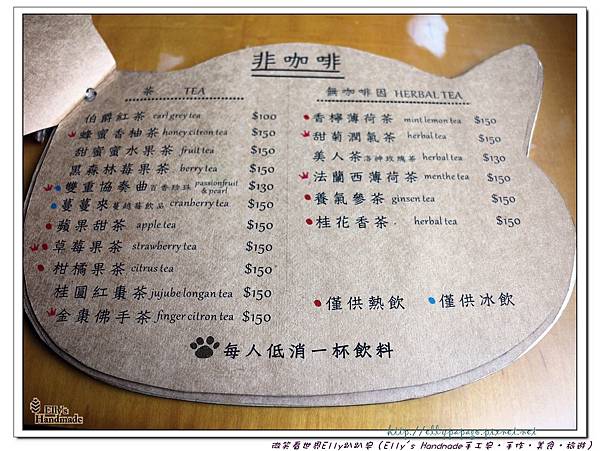 非咖啡
茶 TEA
伯爵紅茶 earl grey tea $100
蜂蜜香柚茶 honey citron tea $150
甜蜜蜜水果茶 fruit tea $150
黑森林莓果茶 berry tea $150
雙重協奏曲 百香珍珠 passionfruit & pearl $130
蔓蔓來 蔓越莓飲品 cranberry tea $150
蘋果甜茶 apple tea $150
草莓果茶 strawberry tea $150
柑橘果茶 citrus tea $150
桂圓紅棗茶 jujube longan tea $150
金棗佛手茶 finger citron tea $150
無咖啡因 HERBAL TEA
香檸薄荷茶 mint lemon tea $150
甜菊潤氣茶 herbal tea $150
美人茶 洛神玫瑰茶 herbal tea $130
法蘭西薄荷茶 menthe tea $150
養氣參茶 ginsen tea $150
桂花香茶 herbal tea $150
僅供熱飲 僅供冰飲
每人低消一杯飲料
Elly's
Handmade
http://ellypapago.pixnet.net
微笑看世界Elly趴趴皂 (Elly's Handmade手工皂‧手作‧美食‧旅遊)